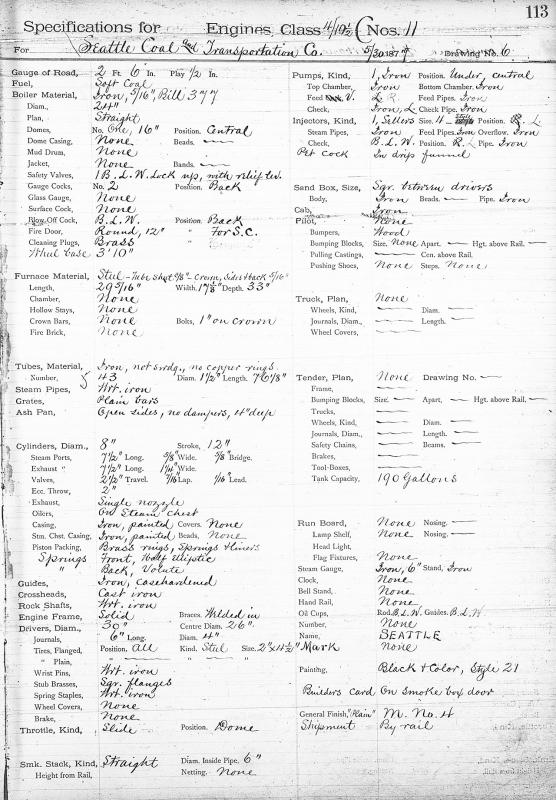 113
Specifications for Engines, Class 4/10½ C Nos. 11
For Seattle Coal and Transportation Co. 5/30 1877 Drawing No. 6
Gauge of Road, 2 Ft. 6 In. Play 1/2 In.
Fuel, Soft Coal
Boiler Material, Iron, 5/16", Bill 377
Diam., 24"
Plan, Straight
Domes, No. One, 16" Position. Central
Dome Casing, None Beads.
Mud Drum, None
Jacket, None Bands.
Safety Valves, 1 B.L.W. Lock up, with relief lev.
Gauge Cocks, No. 2 Position. Back
Glass Gauge, None
Surface Cock, None
Blow-Off Cock, B.L.W. Position. Back
Fire Door, Round, 12" " For S.C.
Cleaning Plugs, Brass
Wheel base 3'10"
Furnace Material, Steel - Tube sheet 3/8" - Crown, sides & back 5/16"
Length, 29 5/16" Width, 17 1/8" Depth. 33"
Chamber, None
Hollow Stays, None
Crown Bars, None Bolts, 1" on crown
Fire Brick, None
Tubes, Material, Iron, not swdg., no copper rings
Number, 43 Diam. 1 1/2" Length. 76 1/8"
Steam Pipes, Wrt. iron
Grates, Plain bars
Ash Pan, Open sides, no dampers, 4" deep
Cylinders, Diam., 8" Stroke, 12"
Steam Ports, 7 1/2" Long. 5/8" Wide. 5/8" Bridge.
Exhaust " 7 1/2" Long. 1 1/4" Wide.
Valves, 2 1/2" Travel. 7/16" Lap. 1/16" Lead.
Ecc. Throw, 2"
Exhaust, Single nozzle
Oilers, On Steam chest
Casing, Iron, painted Covers. None
Stm. Chst. Casing, Iron, painted Beads, None
Piston Packing, Brass rings, Springs & liners
Springs Front, Half Elliptic
" Back, Volute
Guides, Iron, casehardened
Crossheads, Cast iron
Rock Shafts, Wrt. iron
Engine Frame, Solid Braces. Welded in
Drivers, Diam., 30" Centre Diam. 26"
Journals, 6" Long. Diam. 4"
Tires, Flanged, Position. All Kind. Steel Size. 2" x 4 1/2"
" Plain, " "
Wrist Pins, Wrt. iron
Stub Brasses, Sqr. flanges
Spring Staples, Wrt. iron
Wheel Covers, None
Brake, None
Throttle, Kind, Slide Position. Dome
Smk. Stack, Kind, Straight Diam. Inside Pipe. 6"
Height from Rail, Netting. None
Pumps, Kind, 1, Iron Position. Under, central
Top Chamber, Iron Bottom Chamber. Iron
Feed V. Feed Pipes. Iron
Check, L, Iron Check Pipe. Iron
Injectors, Kind, 1, Sellers Size. 4 Position. R.
Steam Pipes, Iron Feed Pipes. Iron Overflow. Iron
Check, B.L.W. Position. R. Pipe. Iron
Pet Cock In drip funnel
Sand Box, Size, Sqr. between drivers
Body, Iron Beads. Pipe. Iron
Cab, Iron
Pilot, None
Bumpers, Wood
Bumping Blocks, Size. None Apart. Hgt. above Rail.
Pulling Castings, Cen. above Rail.
Pushing Shoes, None Steps. None
Truck, Plan, None
Wheels, Kind, Diam.
Journals, Diam., Length.
Wheel Covers,
Tender, Plan, None Drawing No.
Frame,
Bumping Blocks, Size. Apart, Hgt. above Rail.
Trucks,
Wheels, Kind, Diam.
Journals, Diam., Length.
Safety Chains, Beams.
Brakes,
Tool-Boxes,
Tank Capacity, 190 Gallons
Run Board, None Nosing.
Lamp Shelf, None Nosing.
Head Light,
Flag Fixtures, None
Steam Gauge, Iron, 6" Stand, Iron
Clock, None
Bell Stand, None
Hand Rail, None
Oil Cups, Rod. B.L.W. Guides. B.L.W.
Number, None
Name, SEATTLE
Mark None
Painting, Black & Color, Style 21
Builders card On Smoke box door
General Finish, "Plain" M. No. 4
Shipment By rail